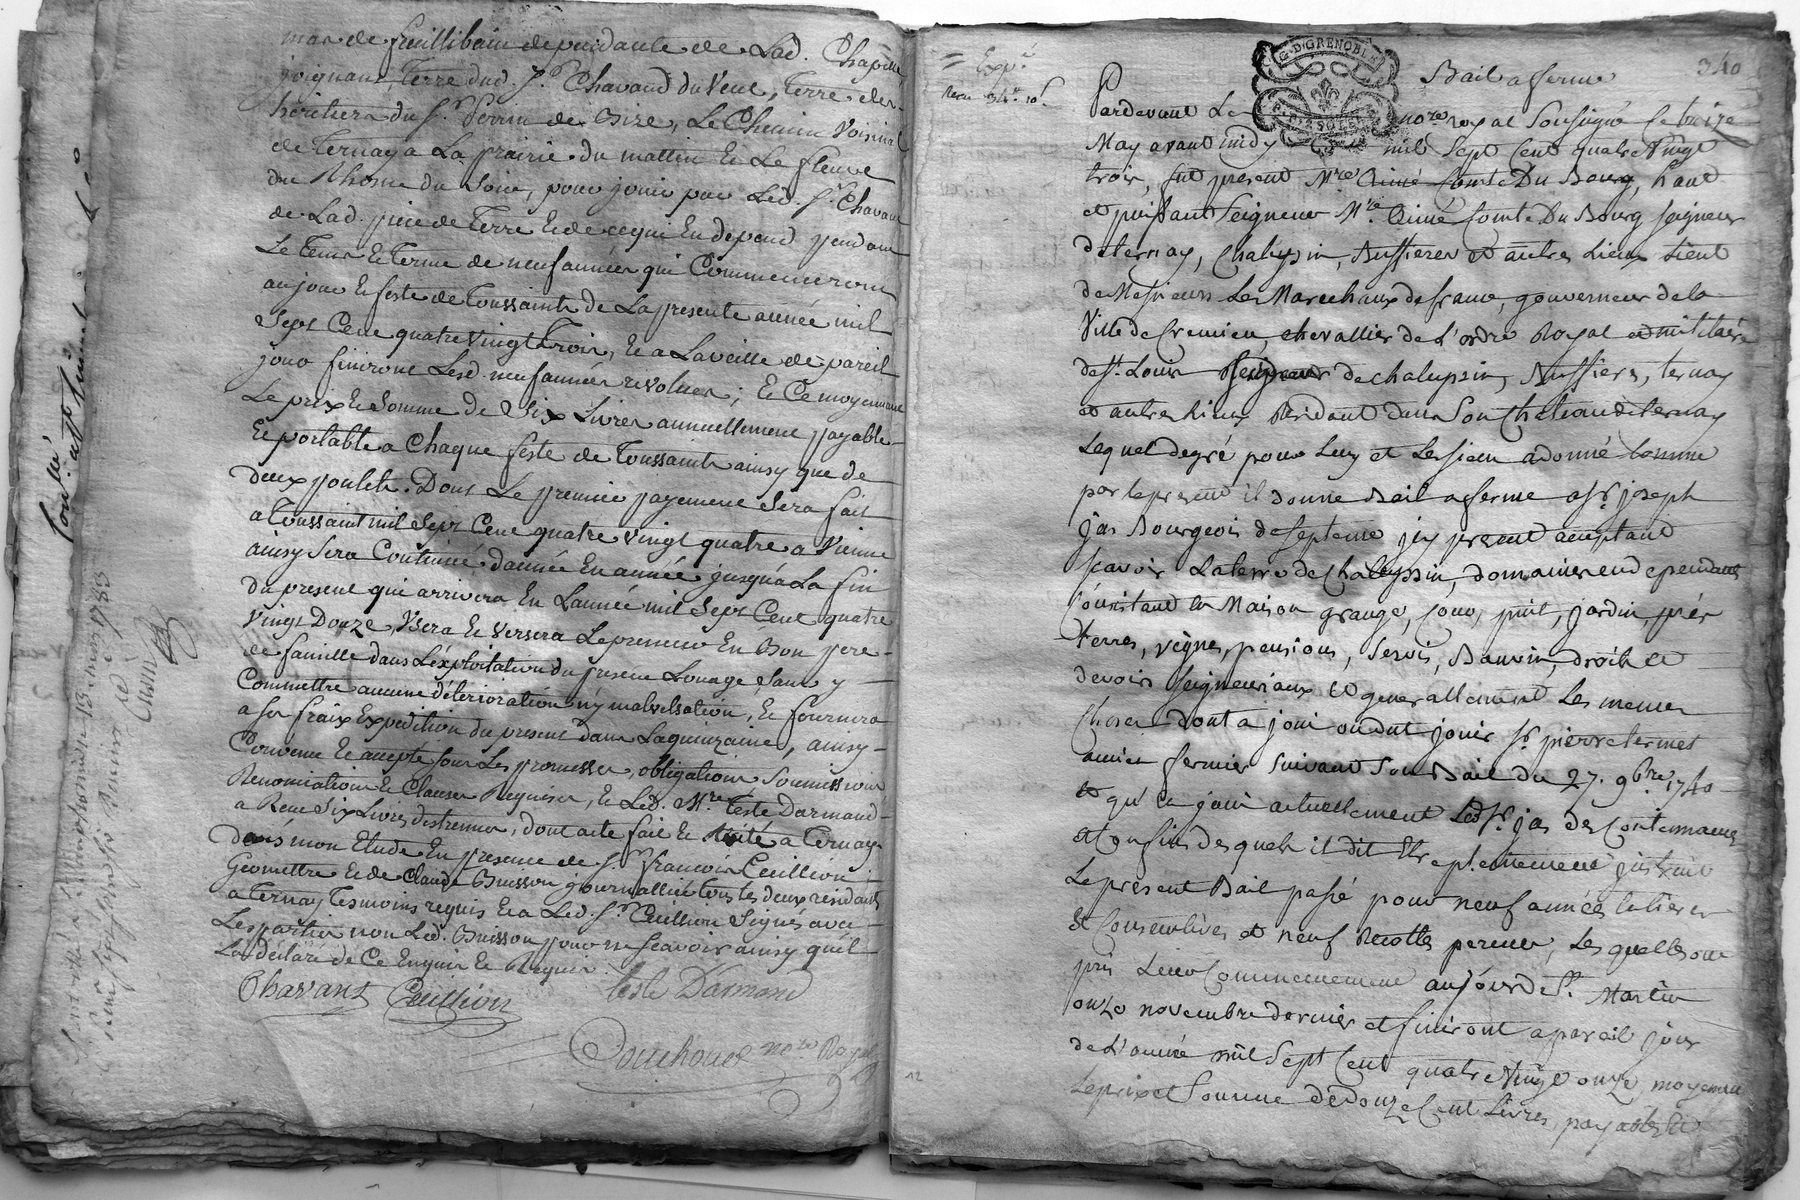 mas de feuillibain dependante de Lad. Chapelle
joignant, Terre dud. Sr. Chavand du Vent, Terre des
héritiers du Sr. Perrin de Bize, Le Chemin Voisinal
de Ternay a La prairie du mattin Et Le fleuve
du Rhosne du Soir, pour jouir par Led. Sr. Chavant
de Lad. piece de Terre Et de ce qui En depend pendant
Le Tems Et Terme de neuf années qui Commenceront
au jour Et feste de Toussaints de La presente année mil
Sept Cent quatre vingt Trois, Et a La veille de pareil
jour finiront Lesd. neuf années revolues; Et Ce moyennant
Le prix Et Somme de Six Livres annuellement payable
Et portable a Chaque feste de Toussaints ainsy que de
deux poulets. Dont Le premier payement Sera fait
a Toussaint mil Sept Cent quatre vingt quatre a Vienne
ainsy Sera Continué d'année En année jusqu'a La fin
du present qui arrivera En L'année mil Sept Cent quatre
Vingt Douze, Usera Et Versera Le preneur En Bon pere
de famille dans L'exploitation du present Louage, Sans y
Commettre aucune déterioration ny malversation, Et fournira
a ses fraix Expedition du present dans La quinzaine, ainsy
Convenu Et accepté sous Les promesses, obligations Soumissions
Renonciations Et Clauses Requises, Et Led. Mre. Teste Darmand
a Reçu Six Livres d'estrennes, dont acte fait Et Récité a Ternay
dans mon Etude En presence de Sr. françois Cuillion
Geomettre Et de Claude Buisson journallier tous les deux résidants
a Ternay Tesmoins requis Et a Led. Sr. Cuillion Signés avec
Les parties non Led. Buisson pour ne scavoir ainsy qu'il
La déclaré de Ce Enquis Et Requis.
Chavant Cuillion Teste Darmand
Couchoud nore Royal
12
= Expé.
G. D. GRENOBLE
Bail a ferme
340
Pardevant Le nore royal Soussigné Ce treize
May avant midy mil Sept Cent quatre Vingt
trois, fut present Mre Aimé Comte Du Bourg, haut
et puissant Seigneur Mre. Aimé Comte Du Bourg seigneur
de ternay, Chaleyssin, Buffieres et autres Lieux Lieut
de Messieurs Les Marechaux de france, gouverneur de la
Ville de Cremieu, chevallier de L'ordre Royal et militaire
de St. Louis Seigneur de chaleyssin, Buffieres, ternay
et autres Lieux Résidant dans Son Chateau de ternay
Lequel de gré pour Luy et Les siens a donné Comme
par le present il donne Bail a ferme a Sr. joseph
jas Bourgeois de septeme icy present acceptant
scavoir La terre de Chaleyssin, domaines en dependants
Consistant en Maison grange, cour, puit, jardin, prés
terres, vignes, pensions, Servis, Banvin, droits et
devoirs seigneuriaux et generallement Les memes
Choses dont a joui ou dut jouir Sr. pierre termet
ancien fermier Suivant Son Bail du 27. 9bre. 1740
et qu'en joui actuellement Led. Sr. jas des Contenances
et Confins des quels il dit Etre plainement instruit
Le present Bail passé pour neuf années Entieres
et Consecutives et neuf Recoltes percues, Les quelles ont
pris Leur Commencement au jour de St. Martin
onze novembre dernier et finiront a pareil jour
de L'année mil Sept Cent quatre Vingt onze moyennant
Le prix et Somme de Douze Cent Livres payables